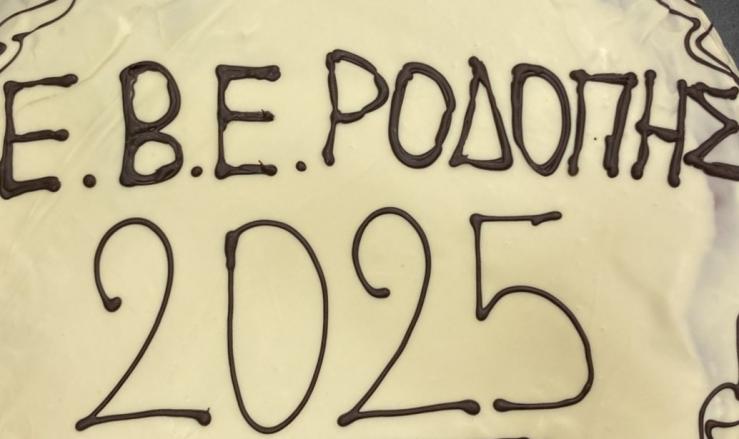 Ε.Β.Ε. ΡΟΔΟΠΗΣ
2025